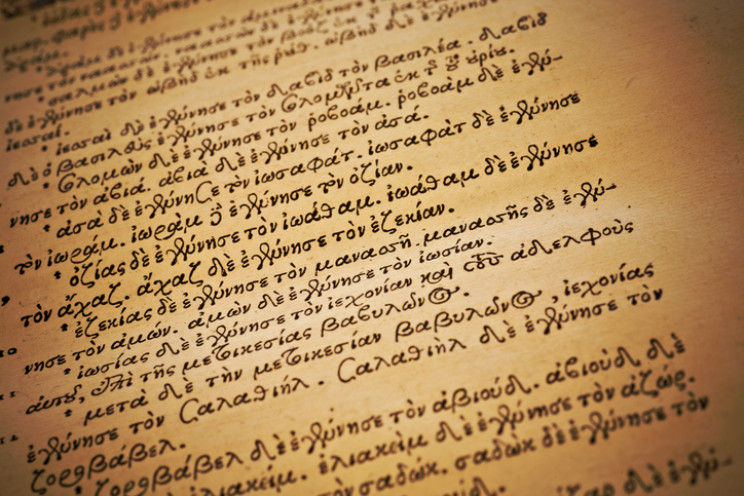 ἰεσσαί.
ἰεσσαὶ δὲ ἐγέννησε τὸν δαβὶδ τὸν βασιλέα. δαβὶδ
δὲ ὁ βασιλεὺς ἐγέννησε τὸν σολομῶντα ἐκ τῆς τοῦ οὐρίου.
Σολομὼν δὲ ἐγέννησε τὸν ῥοβοάμ. ῥοβοὰμ δὲ ἐγέν-
νησε τὸν ἀβιά. ἀβιὰ δὲ ἐγέννησε τὸν ἀσά.
ἀσὰ δὲ ἐγέννησε τὸν ἰωσαφάτ. ἰωσαφὰτ δὲ ἐγέννησε
τὸν ἰωράμ. ἰωρὰμ δὲ ἐγέννησε τὸν ὀζίαν.
ὀζίας δὲ ἐγέννησε τὸν ἰωάθαμ. ἰωάθαμ δὲ ἐγέννησε
τὸν ἄχαζ. ἄχαζ δὲ ἐγέννησε τὸν ἐζεκίαν.
ἐζεκίας δὲ ἐγέννησε τὸν μανασσῆ. μανασσῆς δὲ ἐγέν-
νησε τὸν ἀμών. ἀμὼν δὲ ἐγέννησε τὸν ἰωσίαν.
ἰωσίας δὲ ἐγέννησε τὸν ἰεχονίαν καὶ τοὺς ἀδελφοὺς
αὐτοῦ, ἐπὶ τῆς μετοικεσίας βαβυλῶνος.
μετὰ δὲ τὴν μετοικεσίαν βαβυλῶνος, ἰεχονίας
ἐγέννησε τὸν Σαλαθιήλ. Σαλαθιὴλ δὲ ἐγέννησε τὸν
ζοροβάβελ.
ζοροβάβελ δὲ ἐγέννησε τὸν ἀβιούδ. ἀβιοὺδ δὲ
ἐγέννησε τὸν ἐλιακείμ. ἐλιακεὶμ δὲ ἐγέννησε τὸν ἀζώρ.
ἐγέννησε τὸν σαδώκ. σαδὼκ δὲ ἐγέννησε τὸν